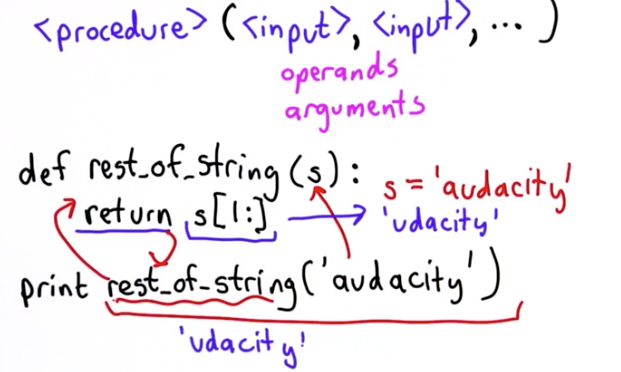 <procedure> (<input>, <input>, ... )
operands
arguments
def rest_of_string (s) :
s = 'audacity'
return s[1:]
'udacity'
print rest_of_string('audacity')
'udacity'